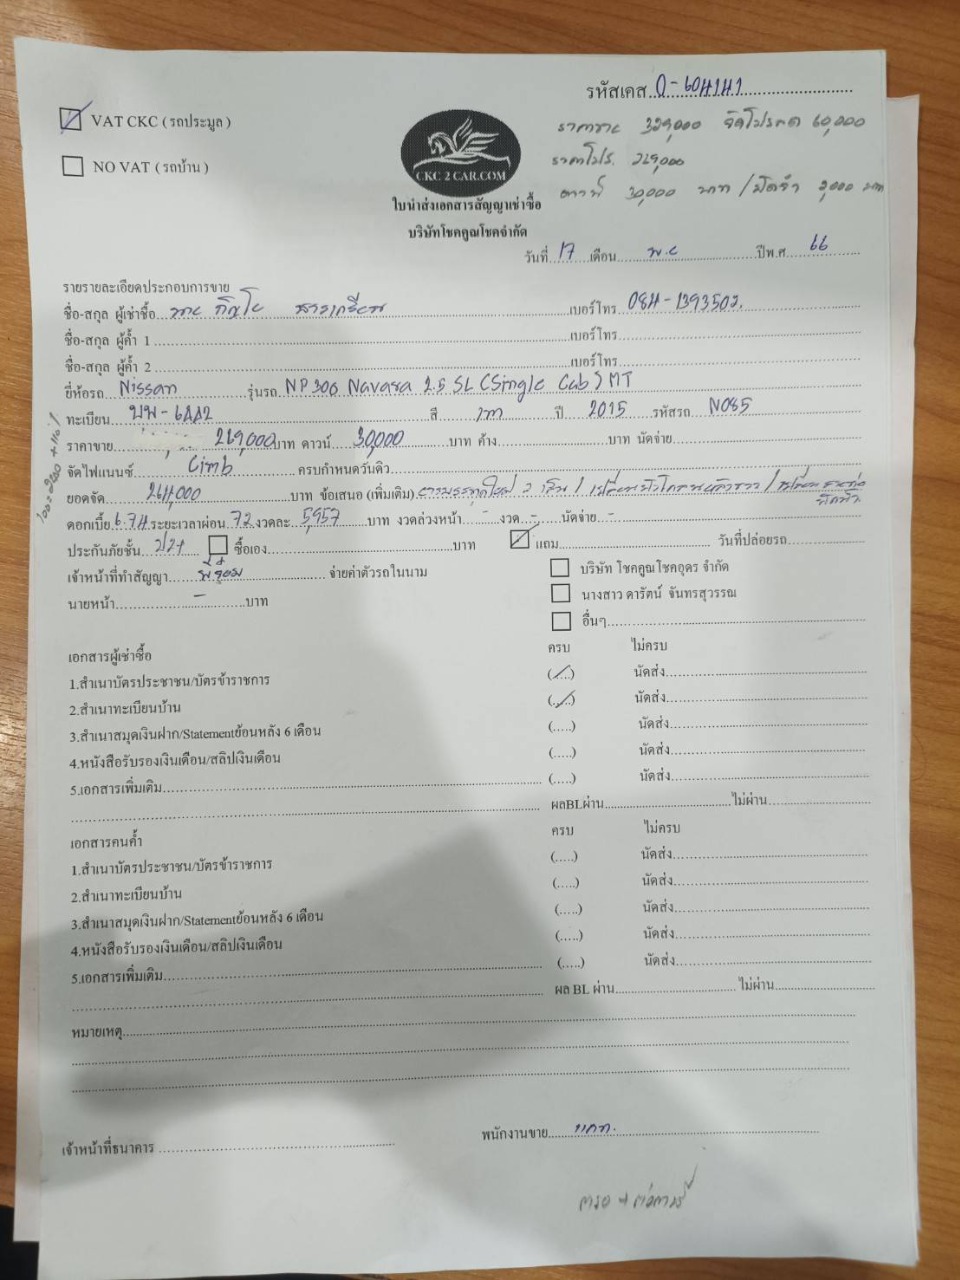 รหัสเคส
VAT CKC ( รถประมูล )
NO VAT ( รถบ้าน )
CKC 2 CAR.COM
ราคาขาย 329,000 60,000
ราคาโปร.
ดาวน์ 30,000 บาท /
ใบนำส่งเอกสารสัญญาเช่าซื้อ
บริษัทโชคคูณโชคจำกัด
วันที่ 17 เดือน พ.ย ปีพ.ศ. 66
รายรายละเอียดประกอบการขาย
ชื่อ-สกุล ผู้เช่าซื้อ นาย เบอร์โทร
ชื่อ-สกุล ผู้ค้ำ 1 เบอร์โทร
ชื่อ-สกุล ผู้ค้ำ 2 เบอร์โทร
ยี่ห้อรถ Nissan รุ่นรถ NP 300 Navara 2.5 SL (Single Cab) MT
ทะเบียน สี เทา ปี 2015 รหัสรถ N085
ราคาขาย บาท ดาวน์ 30,000 บาท ค้าง บาท นัดจ่าย
จัดไฟแนนซ์ Cimb ครบกำหนดวันดิว
ยอดจัด บาท ข้อเสนอ (เพิ่มเติม)
ดอกเบี้ย 6.74 ระยะเวลาผ่อน 72 งวดละ 5,957 บาท งวดล่วงหน้า - งวด - นัดจ่าย -
ประกันภัยชั้น 2/2+ ซื้อเอง บาท แถม วันที่ปล่อยรถ
เจ้าหน้าที่ทำสัญญา จ่ายค่าตัวรถในนาม บริษัท โชคคูณโชคอุดร จำกัด
นายหน้า - บาท นางสาว ดารัตน์ จันทรสุวรรณ
อื่นๆ
เอกสารผู้เช่าซื้อ ครบ ไม่ครบ
1.สำเนาบัตรประชาชน/บัตรข้าราชการ (../..) นัดส่ง
2.สำเนาทะเบียนบ้าน (../..) นัดส่ง
3.สำเนาสมุดเงินฝาก/Statementย้อนหลัง 6 เดือน (.....) นัดส่ง
4.หนังสือรับรองเงินเดือน/สลิปเงินเดือน (.....) นัดส่ง
5.เอกสารเพิ่มเติม (.....) นัดส่ง
ผลBLผ่าน ไม่ผ่าน
เอกสารคนค้ำ ครบ ไม่ครบ
1.สำเนาบัตรประชาชน/บัตรข้าราชการ (.....) นัดส่ง
2.สำเนาทะเบียนบ้าน (.....) นัดส่ง
3.สำเนาสมุดเงินฝาก/Statementย้อนหลัง 6 เดือน (.....) นัดส่ง
4.หนังสือรับรองเงินเดือน/สลิปเงินเดือน (.....) นัดส่ง
5.เอกสารเพิ่มเติม (.....) นัดส่ง
ผล BL ผ่าน ไม่ผ่าน
หมายเหตุ
เจ้าหน้าที่ธนาคาร พนักงานขาย